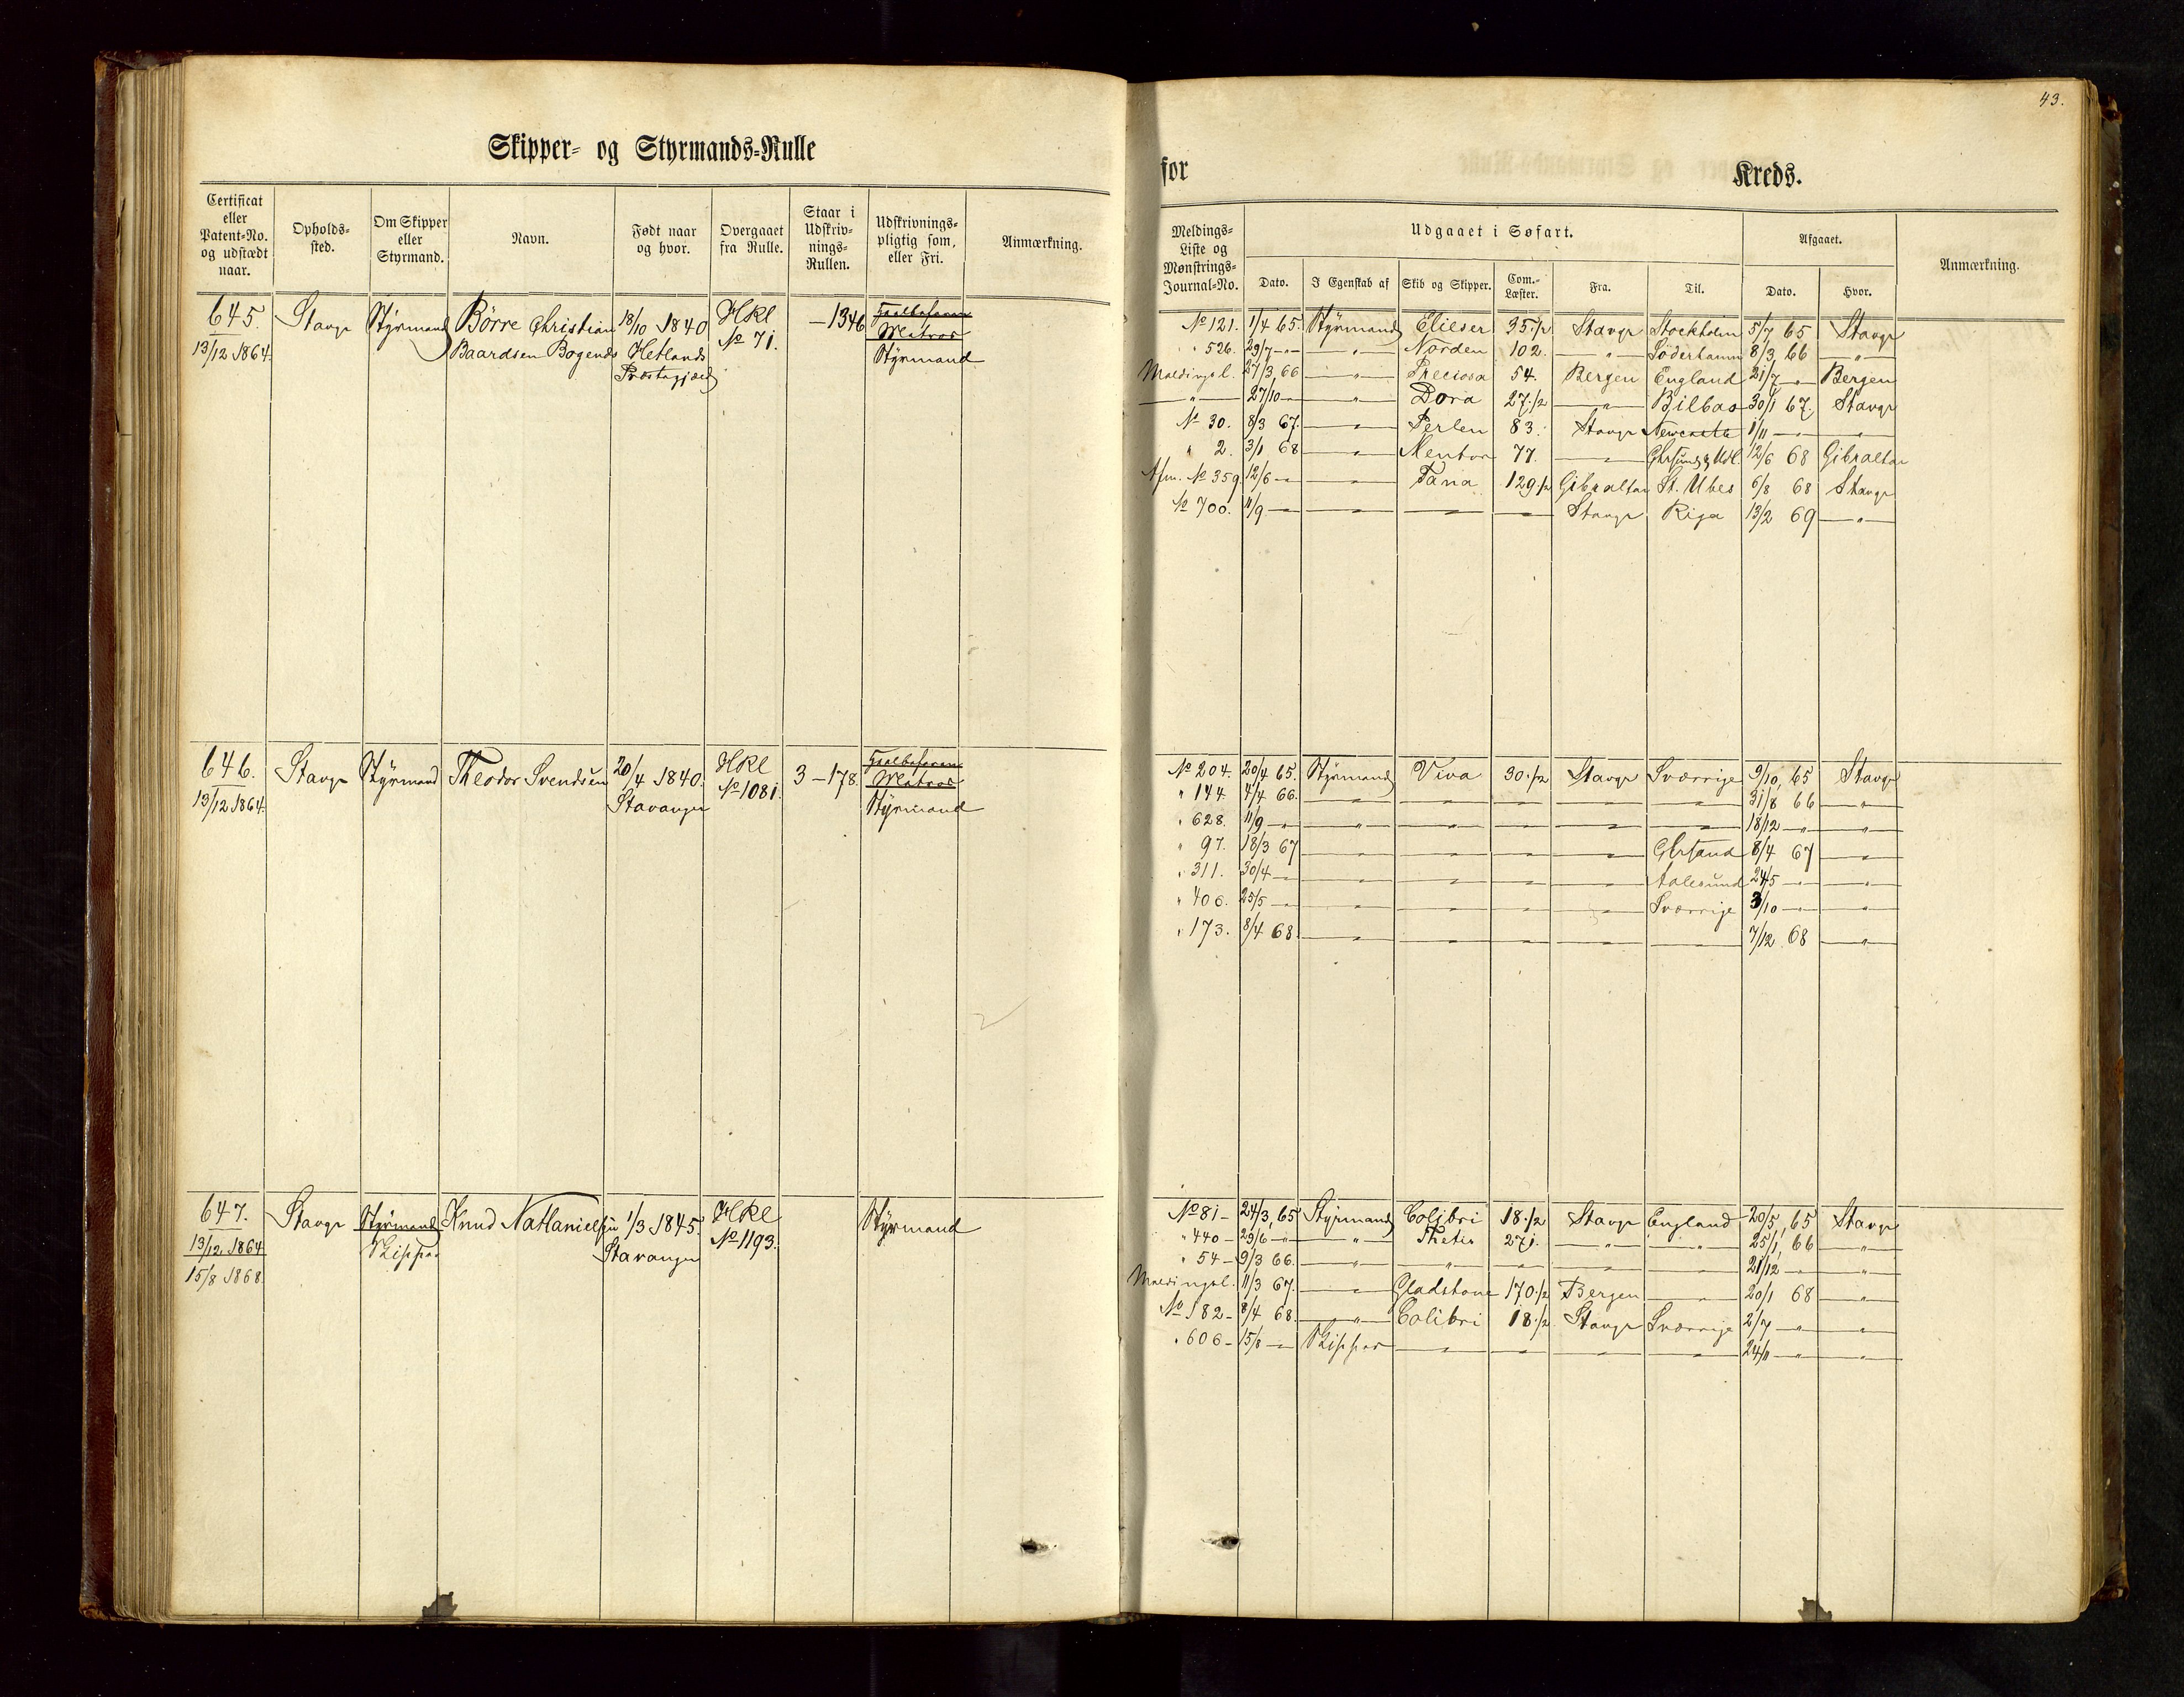 43.
Skipper- og Styrmands-Rulle
for Kreds.
Certificat eller Patent-No. og udstædt naar.
Opholds-sted.
Om Skipper eller Styrmand.
Navn.
Født naar og hvor.
Overgaaet fra Rulle.
Staar i Udskriv-nings-Rullen.
Udskrivnings-pligtig som, eller Fri.
Anmærkning.
Meldings-Liste og Mønstrings-Journal-No.
Udgaaet i Søfart.
Dato.
I Egenskab af
Skib og Skipper.
Com.-Læster.
Fra.
Til.
Afgaaet.
Dato.
Hvor.
Anmærkning.
645. Stavgr Styrmand Børre Christian 18/10 1840 HKl — 1346
13/12 1864. Baardsen Bogends Hetlands No 71. Matros
Præstegjæld Styrmand
No 121. 1/4 65. Styrmand Elieser 35 1/2 Stavgr Stockholm 5/7 65 Stavgr
" 526. 29/7 — " — — " — Norden 102. — " — Söderhamn 8/3 66 — " —
Meldingsl. 27/3 66 — " — Preciosa 54. Bergen England 21/7 — " — Bergen
— " — 27/10 — — " — Dora 27 1/2 — " — Bilbao 30/1 67. Stavgr
No 30. 8/3 67. — " — Perlen 83. Stavgr Newcastle 1/11 — " — — " —
" 2. 3/1 68 — " — Mentor 77. — " — 12/6 68 Gibraltar
Afm. No 359. 12/6 — " — — " — Tana 129 1/2 Gibraltar St. Ubes 6/8 68 Stavgr
No 700. 11/9 — " — — " — — " — — " — Stavgr Riga 13/2 69 — " —
646. Stavgr Styrmand Theodor Svendsen 20/4 1840. HKl 3 — 178.
13/12 1864. Stavanger No 1081. Matros
Styrmand
No 204. 20/4 65. Styrmand Viva 30 1/2 Stavgr Sverrige 9/10 65 Stavgr
" 144. 4/4 66. — " — — " — — " — — " — — " — 31/8 66 — " —
" 628. 11/9 — " — — " — — " — — " — — " — — " — 18/12 — " — — " —
" 97. 18/3 67 — " — — " — — " — — " — Chrsand 8/4 67 — " —
" 311. 30/4 — " — — " — — " — — " — — " — Aalesund 24/5 — " — — " —
" 406. 25/5 — " — — " — — " — — " — — " — Sverrige 3/10 — " — — " —
" 173. 8/4 68. — " — — " — — " — — " — — " — 7/12 68 — " —
647. Stavgr Styrmand Knud Nathanielsen 1/3 1845. HKl Styrmand
13/12 1864 Skipper Stavanger No 1193.
15/8 1868.
No 81 — 24/3 65 Styrmand Colibri 18 1/2 Stavgr England 20/5 65 Stavgr
" 440 — 29/6 — " — — " — Thetis 271. — " — — " — 25/1 66 — " —
" 54 — 9/3 66. — " — — " — — " — — " — — " — 21/12 — " — — " —
Meldingsl. 11/3 67. — " — Gladstone 170 1/2 Bergen — " — 20/1 68 — " —
No 182 — 8/4 68. — " — Colibri 18 1/2 Stavgr Sverrige 2/7 — " — — " —
" 606 — 15/8 — " — Skipper — " — — " — — " — — " — 24/11 — " — — " —